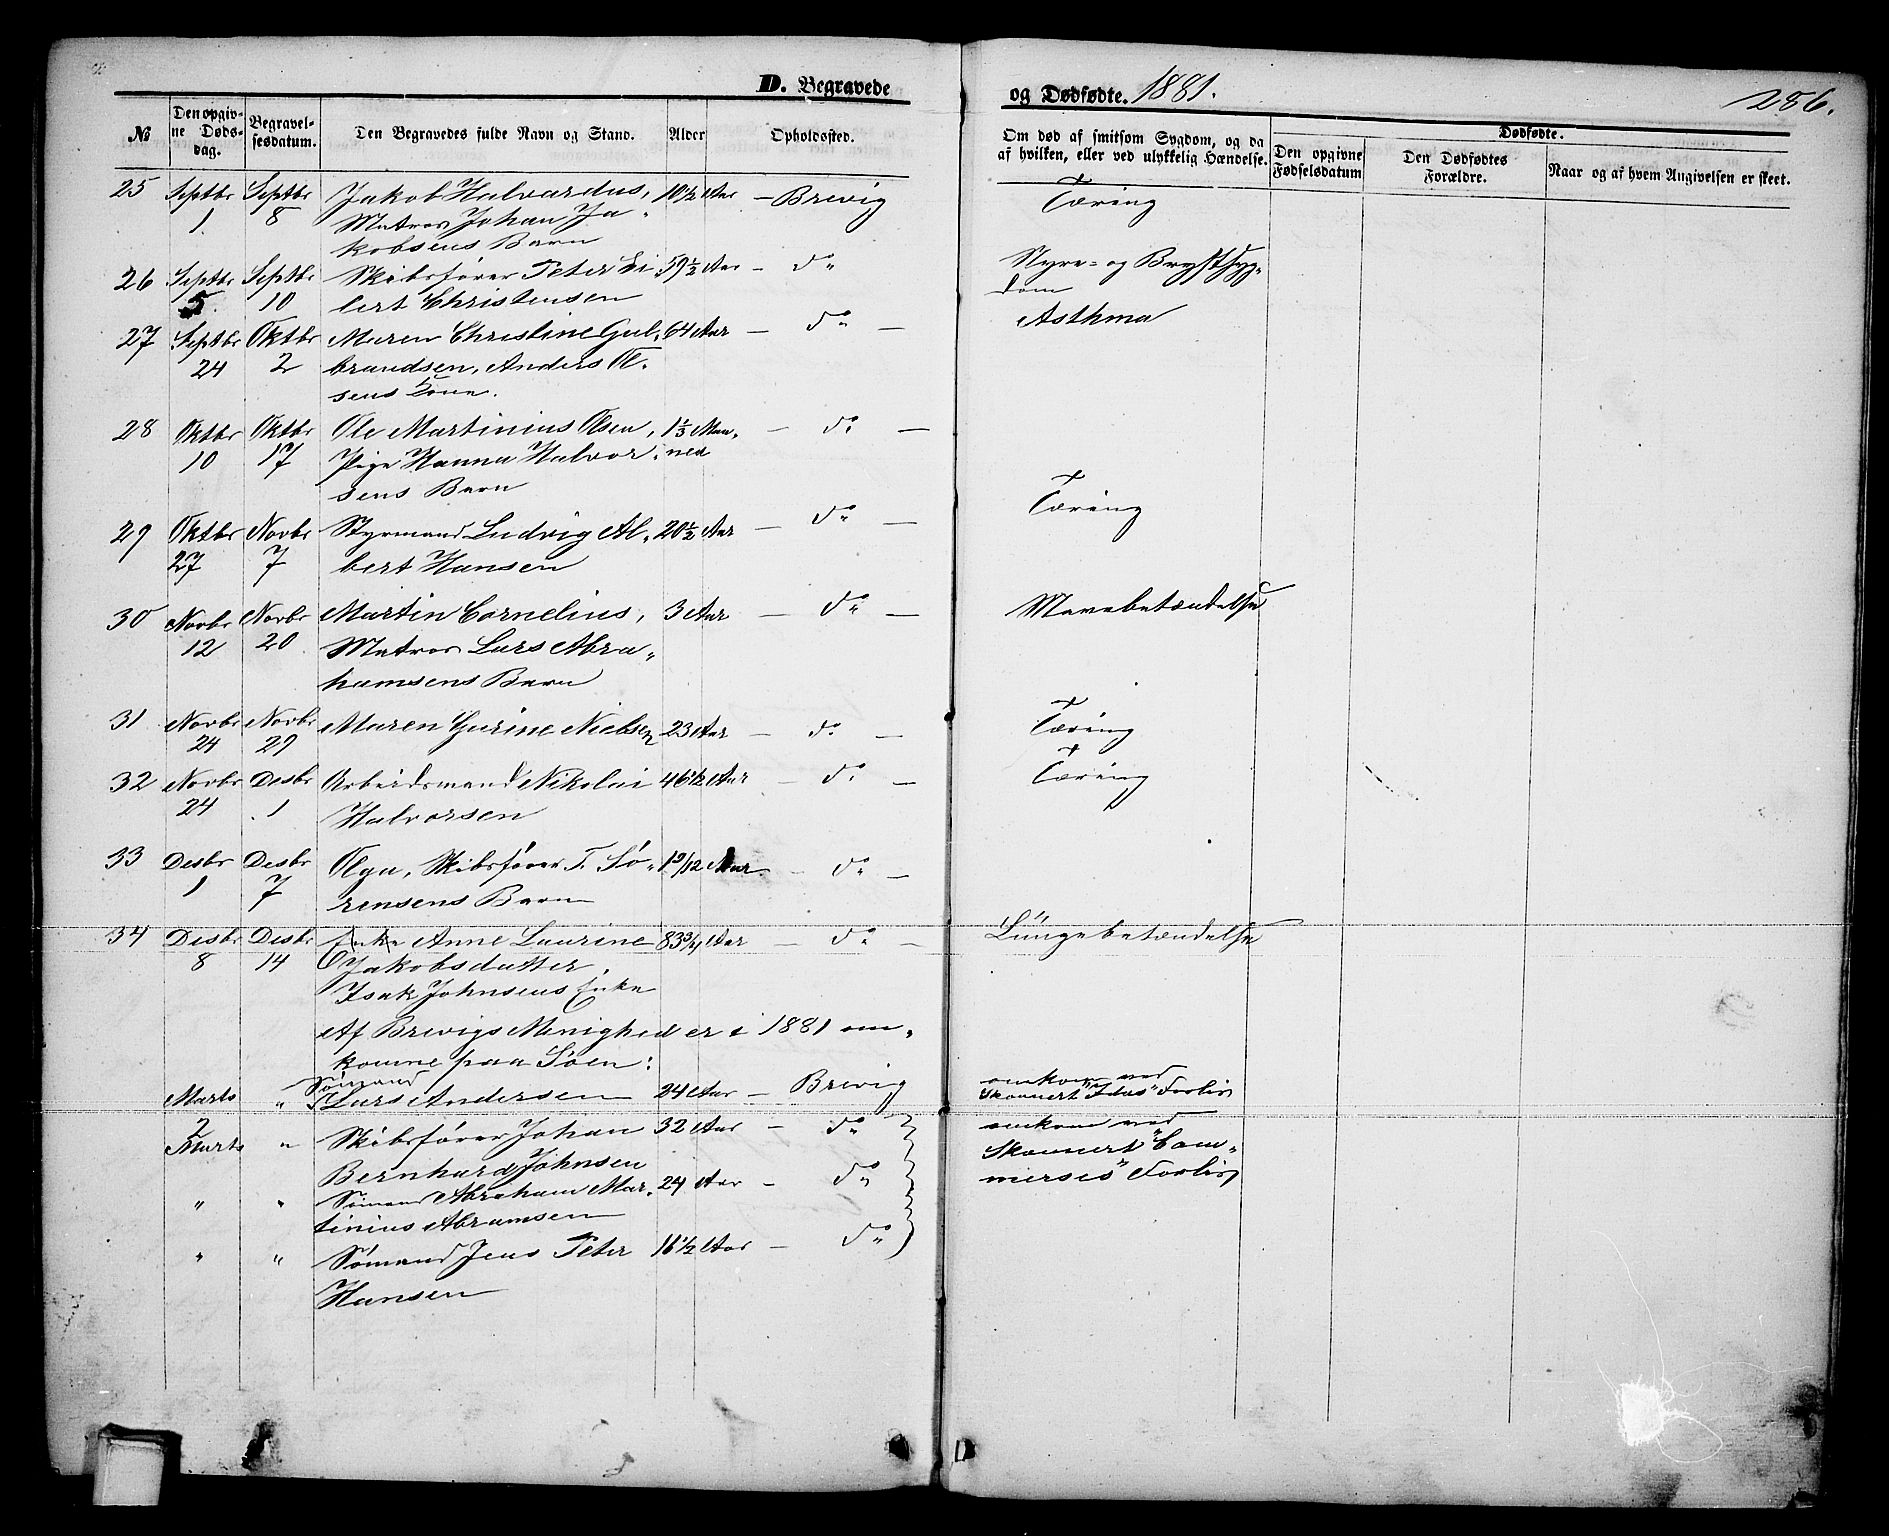 D. Begravede og Dødfødte. 1881. 286.
№ Den opgivne Dødsdag. Begravelsesdatum. Den Begravedes fulde Navn og Stand. Alder Opholdssted. Om død af smitsom Sygdom, og da af hvilken, eller ved ulykkelig Hændelse. Dødfødte. Den opgivne Fødselsdatum Den Dødfødtes Forældre. Naar og af hvem Angivelsen er skeet.
25 Septbr Septbr Jakob Halvardus, 10½ Aar — Brevig Tæring
1 8 Matros Johan Ja„
kobsens Barn
26 Septbr Septbr Skibsfører Peter Ei 59½ Aar — do Nyre- og Brystsyg„
5 10 lert Christensen dom
27 Septbr Oktbr Maren Christine Gul„ 64 Aar — do — Asthma
24 2 brandsen, Anders Ol„
sens Kone.
28 Oktbr Oktbr Ole Martinius Olsen, 1⅓ Maa„ — do —
10 17 Pige Hanna Halvor„ ned
sens Barn
29 Oktbr Novbr Styrmand Ludvig Al„ 20½ Aar — do — Tæring
27 7 bert Hansen
30 Novbr Novbr Martin Cornelius, 3 Aar — do — Mavebetændelse
12 20 Matros Lars Abra„
hamsens Barn
31 Novbr Novbr Maren Gurine Nielsen 23 Aar — do — Tæring
24 29
32 Novbr Desbr Arbeidsmand Nikolai 46½ Aar — do — Tæring
24 1 Halvorsen
33 Desbr Desbr Olga, Skibsfører T. Sø„ 1 9/12 Aar — do —
1 7 rensens Barn
34 Desbr Desbr Enke Anne Laurine 83¾ Aar — do — Lungebetændelse
8 14 Jakobsdatter,
Isak Johnsens Enke
Af Brevigs Menighed er i 1881 om„
komne paa Søen:
Sømand
Marts „ Lars Andersen 24 Aar — Brevig omkom ved
Skonnert "Idas" Forlis
2
Marts „ Skibsfører Johan 32 Aar — do omkom ved
Bernhard Johnsen Skonnert "Com„
„ „ Sømand Abraham Mar„ 24 Aar — do merses" Forlis
tinius Abramsen
„ „ Sømand Jens Peter 16½ Aar — do
Hansen